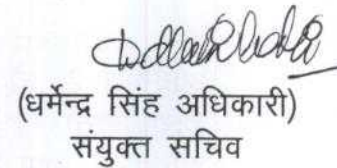 (धर्मेन्द्र सिंह अधिकारी)
संयुक्त सचिव